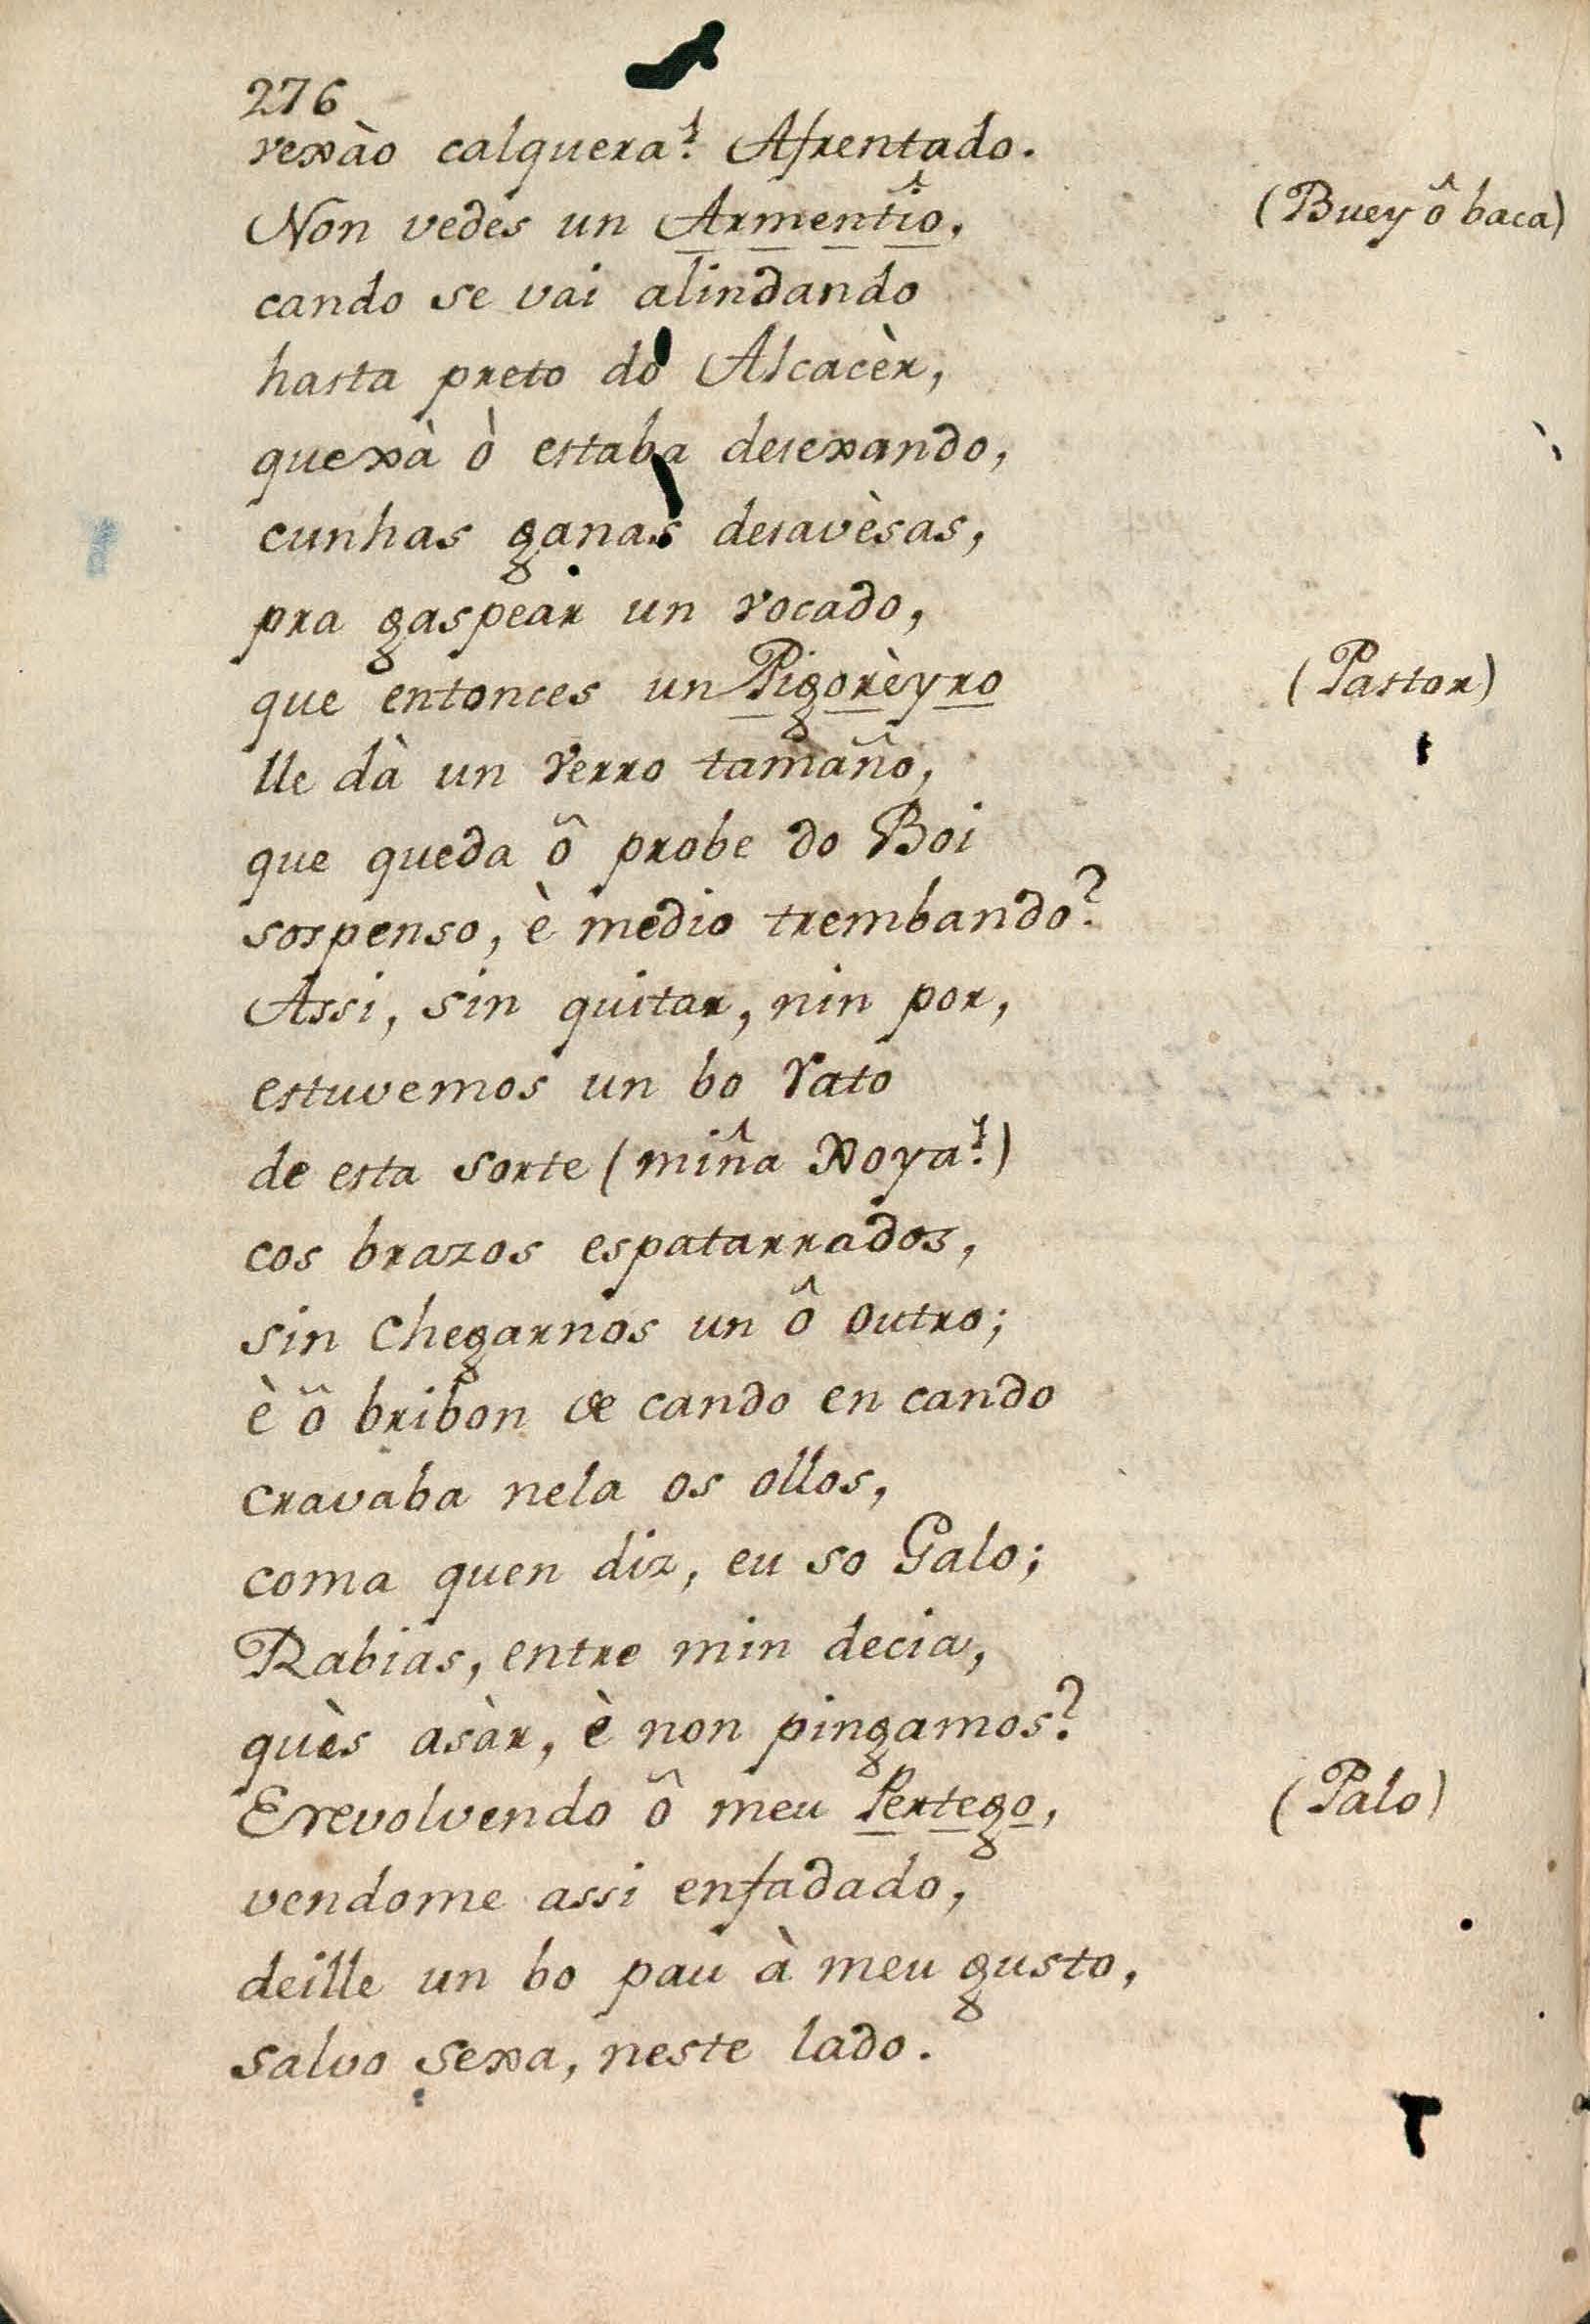 276
rexào calquera! Afrentado.
Non vedes un Armentîo, (Buey ô baca)
cando se vai alindando
hasta preto do Alcacèr,
quexà ò estaba desexando,
cunhas ganas desavèsas,
pra gaspear un rocado,
que entonces un Pigorèyro (Pastor)
lle dà un verro tamaño,
que queda ô probe do Boi
sospenso, è medio trembando?
Assi, sin quitar, nin por,
estuvemos un bo rato
de esta sorte (miña Xoya!)
cos brazos espatarrados,
sin chegarnos un ô outro;
è ô bribon de cando en cando
cravaba nela os ollos,
coma quen diz, eu so Galo;
Rabias, entre min decia,
quès asàr, è non pingamos?
E revolvendo ô meu Pertego, (Palo)
vendome assi enfadado,
deille un bo pau à meu gusto,
salvo sexa, neste lado.